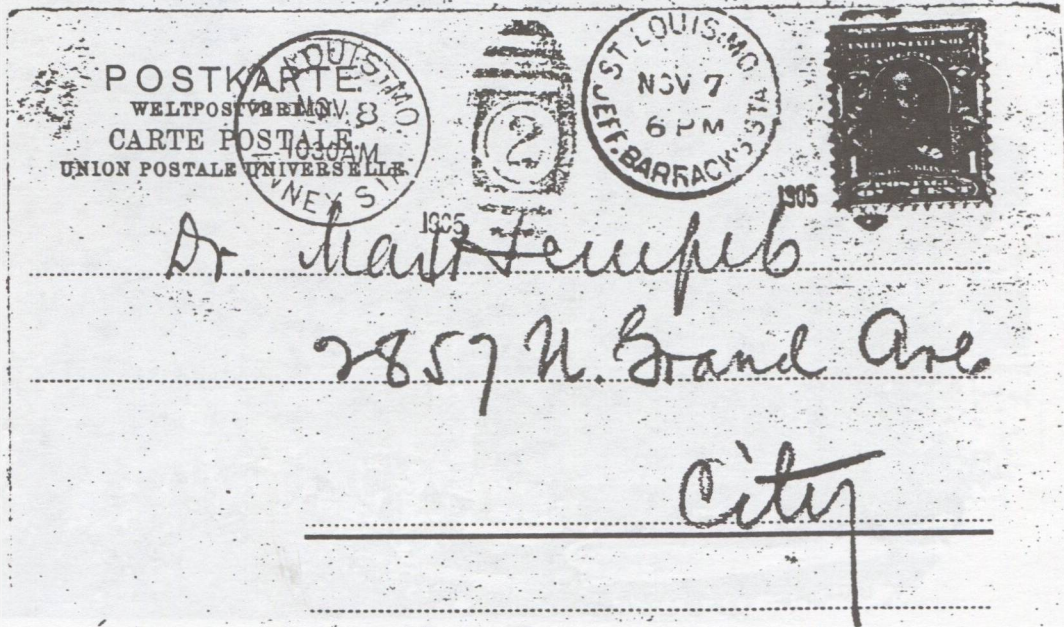 POSTKARTE.
WELTPOSTVEREIN.
CARTE POSTALE.
UNION POSTALE UNIVERSELLE.
LOUIS, MO.
NOV 8
1030 AM
NNEY STA.
1905
2
ST. LOUIS, MO.
NOV 7
6 PM
JEFF. BARRACKS STA.
1905
1
Dr.
2857 N. Grand Ave.
City